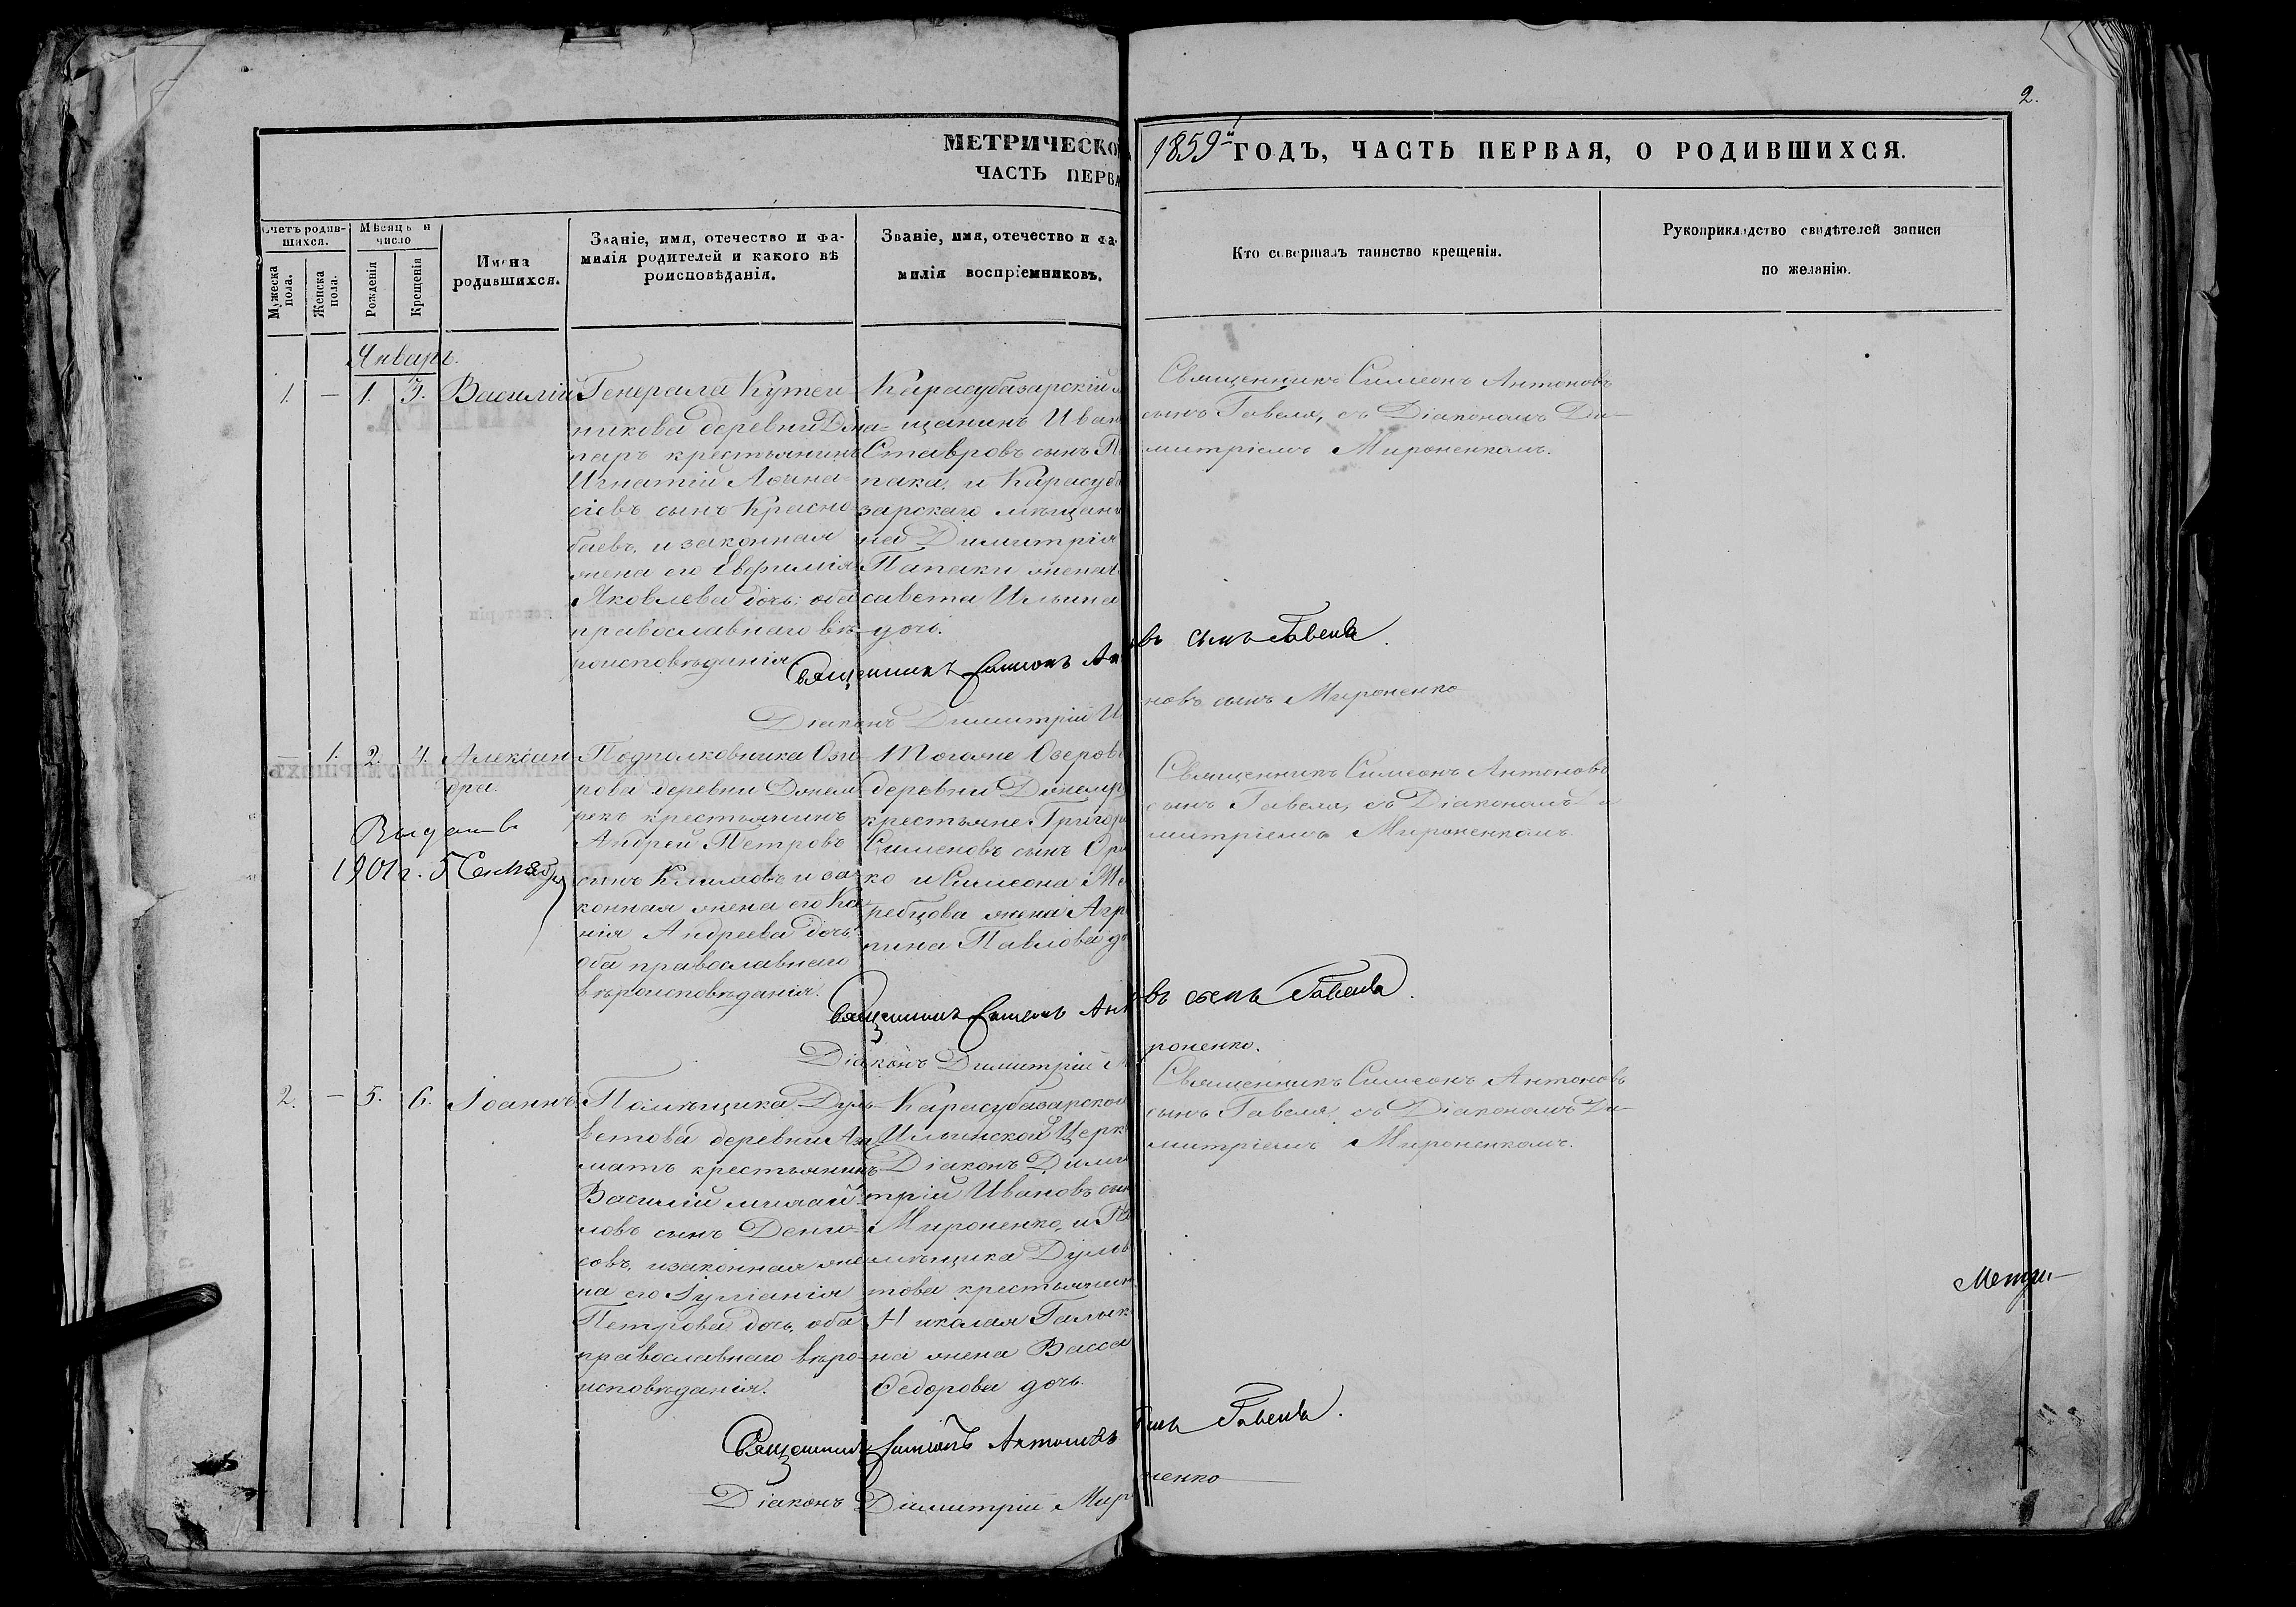 2.
МЕТРИЧЕСКО
ЧАСТЬ ПЕРВА
1859й ГОДЪ, ЧАСТЬ ПЕРВАЯ, О РОДИВШИХСЯ.
Счетъ родив-
шихся.
Мужеска
пола.
Женска
пола.
Мѣсяцъ и
число
Рожденія
Крещенія
Имена
родившихся.
Званіе, имя, отечество и фа-
милія родителей и какого вѣ
роисповѣданія.
Званіе, имя, отечество и фа-
милія воспріемниковъ.
Кто совершалъ таинство крещенія.
Рукоприкладство свидѣтелей записи
по желанію.
Январь.
1. — 1. 3. Василій
Генерала Кутей-
никова деревни
паръ крестьянинъ
Игнатій Аѳана-
сіевъ сынъ Красно
баевъ, и законная
жена его Евфимія
Яковлева дочь; оба
православнаго вѣ-
роисповѣданія.
Карасубазарскій м
щанинъ Иван
Ставровъ сынъ П
пака, и Карасуба
зарскаго мѣщани
на Димитрія
Папаки жена
савета Ильина
дочь.
Священникъ Симеонъ Антоновъ
сынъ Гавеля, съ Діакономъ Ди-
митріемъ Мироненкомъ.
Священникъ Симеонъ Ан
въ сынъ Гавеля.
Діаконъ Димитрій И
новъ сынъ Мироненко
1. 2. 4. Алексан
дра.
Выдана
1901 г. 5 Сентября
Подполковника Озе
рова деревни
рекъ крестьянинъ
Андрей Петровъ
сынъ Климовъ и за
конная жена его
нія Андреева дочь
оба православнаго
вѣроисповѣданія.
Тогоже Озерова
деревни
крестьяне Григор
Сименовъ сынъ
ко и Симеона
ребцова жена Агр
пина Павлова до
Священникъ Симеонъ Антоновъ
сынъ Гавеля, съ Діакономъ Ди
митріемъ Мироненкомъ.
Священникъ Симеонъ Ант
въ сынъ Гавеля.
Діаконъ Димитрій М
роненко.
2. — 5. 6. Іоаннъ
Помѣщика Дуль-
ветова деревни
матъ крестьянинъ
Василій михай-
ловъ сынъ Дени-
совъ, изаконная же
на его Іуліанія
Петрова дочь, оба
православнаго вѣро-
исповѣданія.
Карасубазарской
Ильинской Церк
Діаконъ Дими
трій Ивановъ сын
Мироненко, и По
мѣщика Дульв
това крестьянин
Николая Галык
на жена Васса
Ѳедорова дочь.
Священникъ Симеонъ Антоновъ
сынъ Гавеля, съ Діакономъ Ди-
митріемъ Мироненкомъ.
Метри-
Священникъ Симеонъ Антоновъ
сынъ Гавеля.
Діаконъ Димитрій Мир
ненко